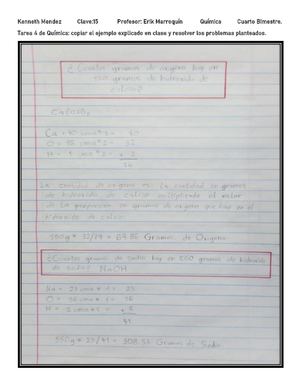 Kenneth Mendez Clave:15 Profesor: Erik Marroquín Química Cuarto Bimestre.
Tarea 4 de Química: copiar el ejemplo explicado en clase y resolver los problemas planteados.
¿Cuantos gramos de oxigeno hay en
gramos de hidroxido de
calcio?
Ca(OH)2
Ca = 40 uma * 1 = 40
O = 16 uma * 2 = 32
H = 1 uma * 2 = + 2
74
La cantidad de oxigeno es la cantidad en gramos
de hidroxido de calcio multiplicado el valor
de la proporcion en gramos de oxigeno que hay en el
hidroxido de calcio
32/74 = Gramos de Oxigeno
¿Cuantos gramos de sodio hay en 550 gramos de hidroxido
de sodio? NaOH
Na = 23 uma * 1 = 23
O = 16 uma * 1 = 16
H =
41
550g * 23/41 = 308.53 Gramos de Sodio